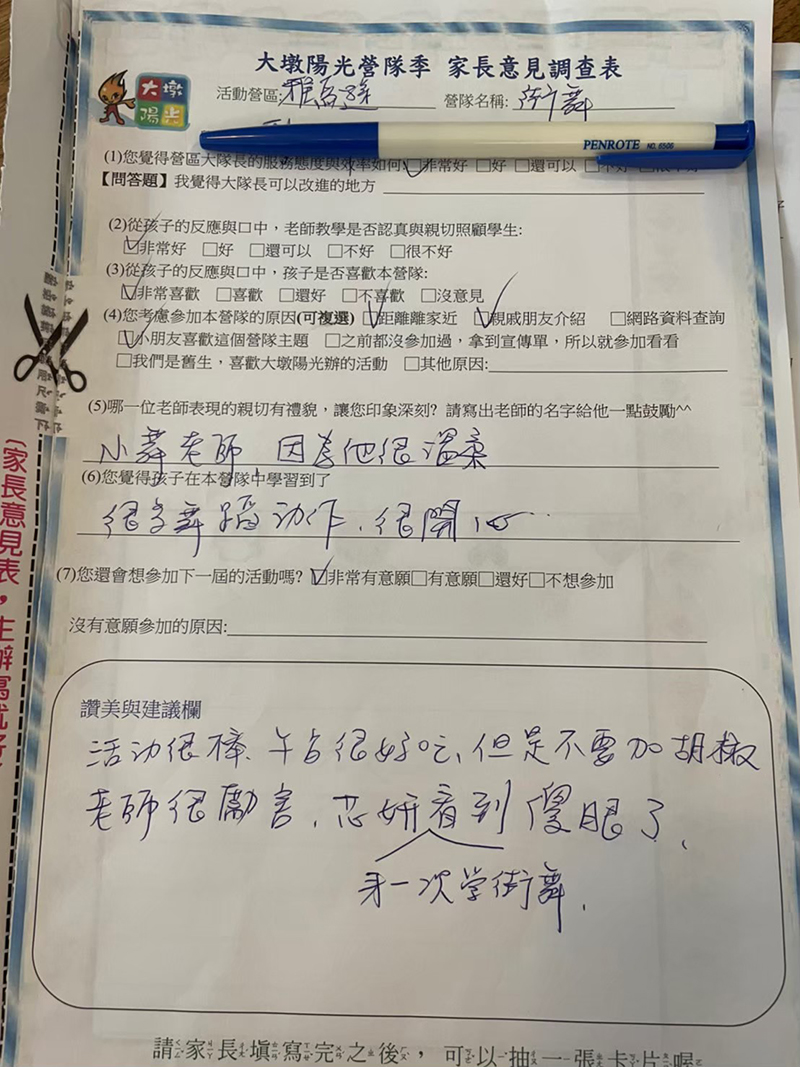 大墩陽光營隊季 家長意見調查表
大墩
陽光
活動營區: 營隊名稱: 街舞
PENROTE NO. 6506
(1)您覺得營區大隊長的服務態度與效率如何 ☑非常好 □好 □還可以
【問答題】我覺得大隊長可以改進的地方
(2)從孩子的反應與口中,老師教學是否認真與親切照顧學生:
☑非常好 □好 □還可以 □不好 □很不好
(3)從孩子的反應與口中,孩子是否喜歡本營隊:
☑非常喜歡 □喜歡 □還好 □不喜歡 □沒意見
(4)您考慮參加本營隊的原因(可複選) ☑距離離家近 ☑親戚朋友介紹 □網路資料查詢
☑小朋友喜歡這個營隊主題 □之前都沒參加過,拿到宣傳單,所以就參加看看
□我們是舊生,喜歡大墩陽光辦的活動 □其他原因:
(5)哪一位老師表現的親切有禮貌,讓您印象深刻? 請寫出老師的名字給他一點鼓勵^^
小舞老師,因為他很溫柔
(6)您覺得孩子在本營隊中學習到了
很多舞蹈动作,很開心…
(7)您還會想參加下一屆的活動嗎? ☑非常有意願□有意願□還好□不想參加
沒有意願參加的原因:
讚美與建議欄
活动很棒、午餐很好吃,但是不要加胡椒
老師很厲害,芯妍看到傻眼了,
第一次学街舞,
請家長填寫完之後,可以抽一張卡片喔
(家長意見表,主辦寫就好